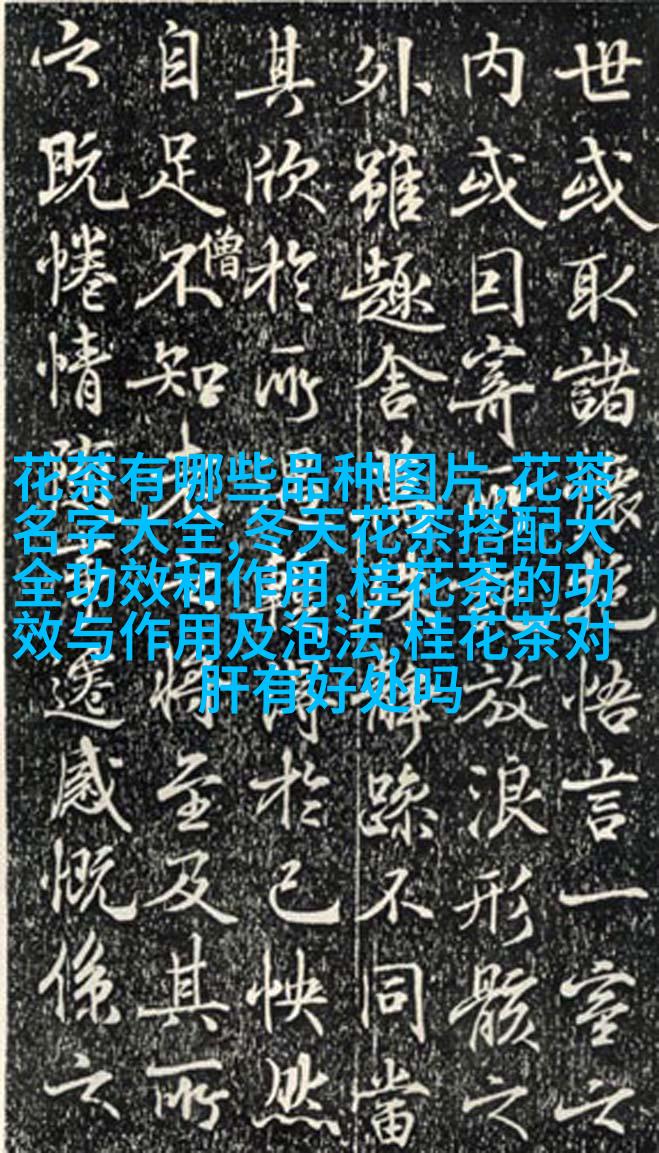 世或取諸懷抱悟言一室之
内或因寄所託放浪形骸之
外雖趣舍殊靜躁不同當
其欣於所得於己怏然
自足不知老將至及其所
僧
之既惓情隨事遷感慨係之
花茶有哪些品种图片,花茶
名字大全,冬天花茶搭配大
全功效和作用,桂花茶的功
效与作用及泡法,桂花茶对
肝有好处吗